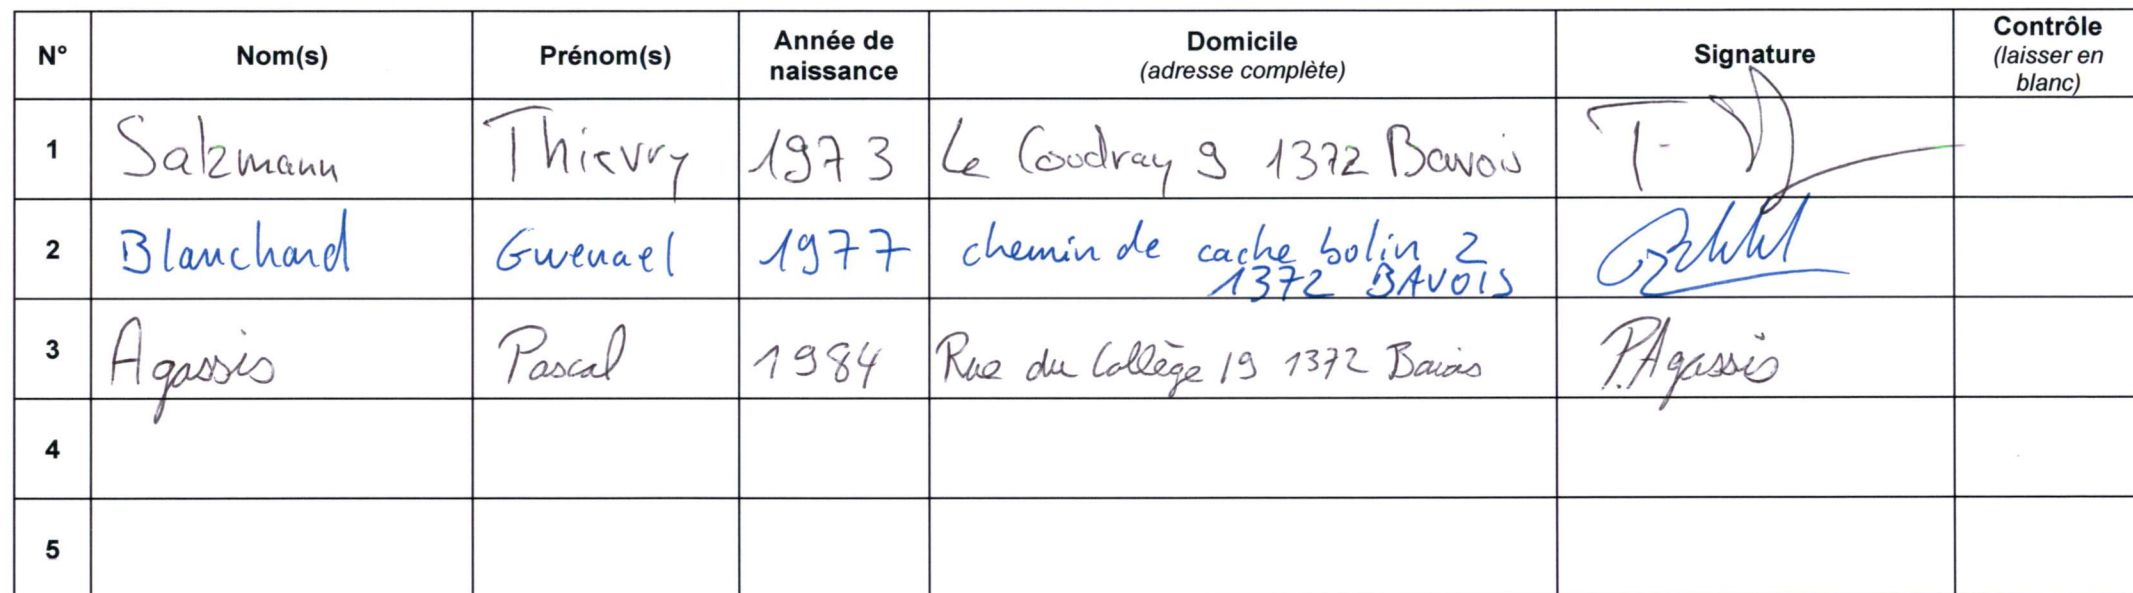 N° Nom(s) Prénom(s) Année de naissance Domicile (adresse complète) Signature Contrôle (laisser en blanc)
1 Salzmann Thierry 1973 Le Coudray 9 1372 Bavois
2 Blanchard Gwenael 1977 chemin de cache bolin 2
1372 BAVOIS
3 Agassis Pascal 1984 Rue du Collège 19 1372 Bavois P.Agassis
4
5